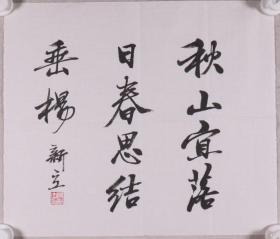 秋山宜落
日春思结
垂杨 新立